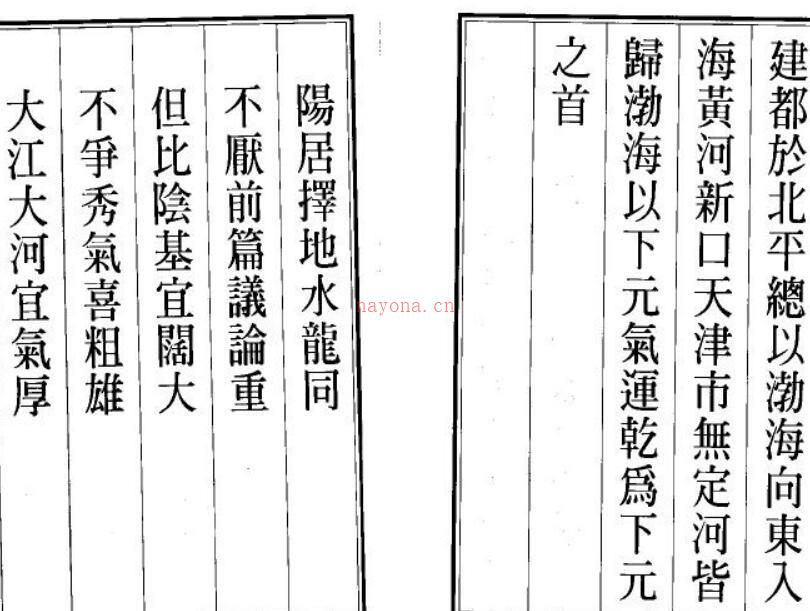 建都於北平總以渤海向東入
海黃河新口天津市無定河皆
歸渤海以下元氣運乾爲下元
之首
陽居擇地水龍同
不厭前篇議論重
但比陰基宜闊大
不爭秀氣喜粗雄
大江大河宜氣厚
nayona.cn